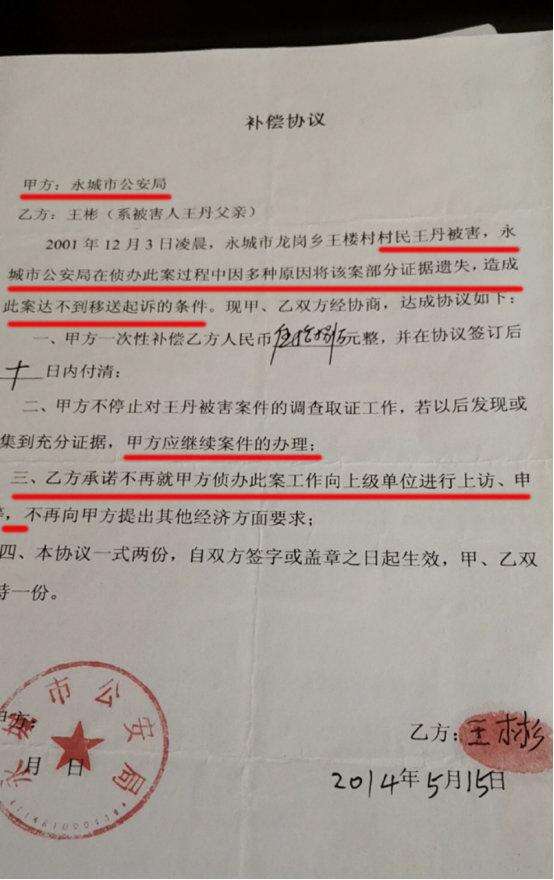 补偿协议
甲方：永城市公安局
乙方：王彬（系被害人王丹父亲）
2001年12月3日凌晨，永城市龙岗乡王楼村村民王丹被害，永
城市公安局在侦办此案过程中因多种原因将该案部分证据遗失，造成
此案达不到移送起诉的条件。现甲、乙双方经协商，达成协议如下：
一、甲方一次性补偿乙方人民币元整，并在协议签订后
十日内付清；
二、甲方不停止对王丹被害案件的调查取证工作，若以后发现或
集到充分证据，甲方应继续案件的办理；
三、乙方承诺不再就甲方侦办此案工作向上级单位进行上访、申
，不再向甲方提出其他经济方面要求；
四、本协议一式两份，自双方签字或盖章之日起生效，甲、乙双
持一份。
甲方：
乙方：王彬
月 日
2014年5月15日
永城市公安局